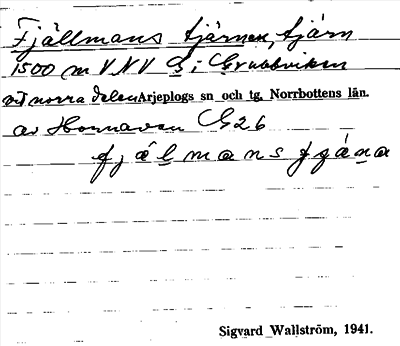 Fjällmans tjärnen, tjärn
1500 m V N V G i Grubbviken
vid norra delen Arjeplogs sn och tg. Norrbottens län.
av Hornavan G 26
fjälmans
Sigvard Wallström, 1941.